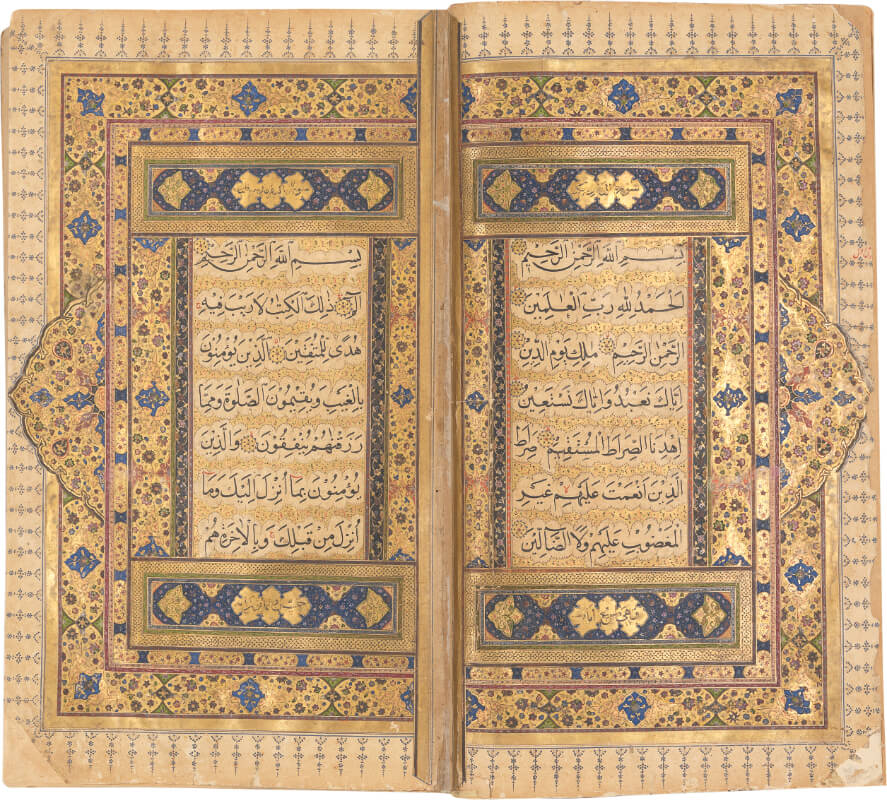 بِسْمِ اللهِ الرَّحْمٰنِ الرَّحِيمِ
اَلْحَمْدُ لِلّٰهِ رَبِّ الْعٰلَمِينَ
الرَّحْمٰنِ الرَّحِيمِ مٰلِكِ يَوْمِ الدِّينِ
اِيَّاكَ نَعْبُدُ وَاِيَّاكَ نَسْتَعِينُ
اِهْدِنَا الصِّرَاطَ الْمُسْتَقِيمَ صِرَاطَ
الَّذِينَ اَنْعَمْتَ عَلَيْهِمْ غَيْرِ
الْمَغْضُوبِ عَلَيْهِمْ وَلَا الضَّالِّينَ
بِسْمِ اللهِ الرَّحْمٰنِ الرَّحِيمِ
الٓمٓ ذٰلِكَ الْكِتٰبُ لَا رَيْبَ فِيهِ
هُدًى لِلْمُتَّقِينَ الَّذِينَ يُؤْمِنُونَ
بِالْغَيْبِ وَيُقِيمُونَ الصَّلٰوةَ وَمِمَّا
رَزَقْنٰهُمْ يُنْفِقُونَ وَالَّذِينَ
يُؤْمِنُونَ بِمَا اُنْزِلَ اِلَيْكَ وَمَا
اُنْزِلَ مِنْ قَبْلِكَ وَبِالْاٰخِرَةِ هُمْ